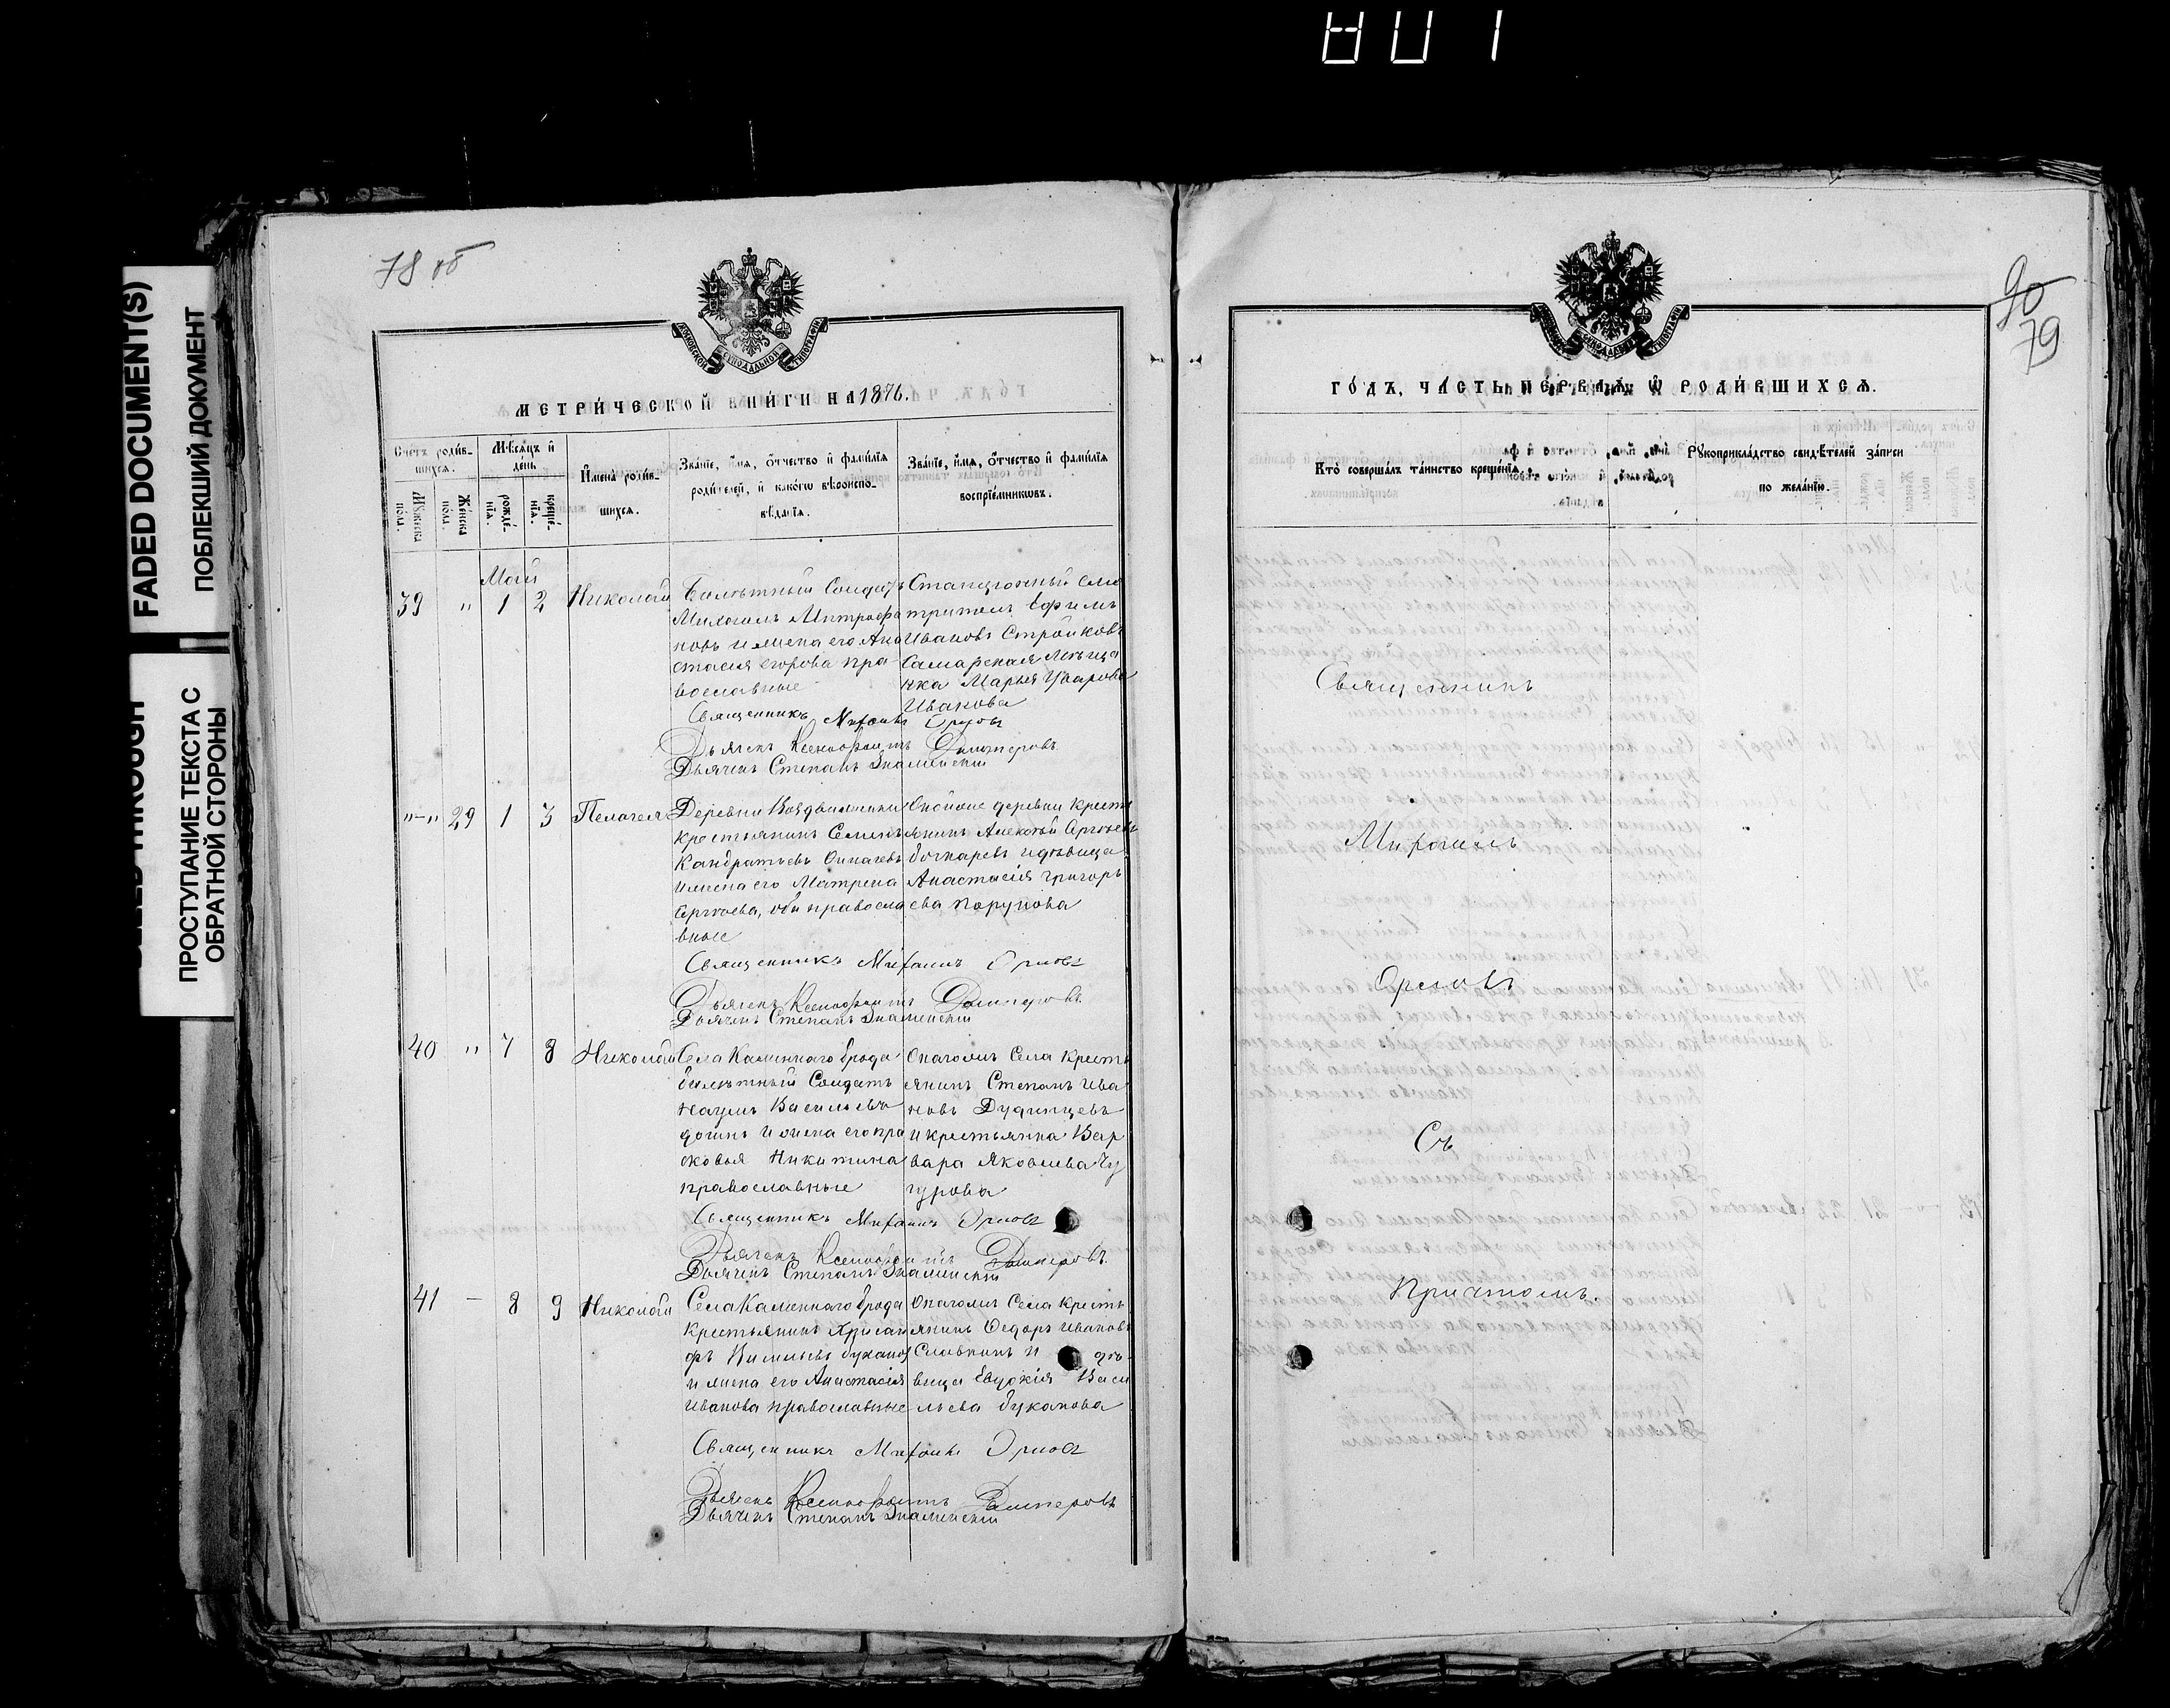 FADED DOCUMENT(S)
ПОБЛЕКШИЙ ДОКУМЕНТ
ПРОСТУПАНИЕ ТЕКСТА С
ОБРАТНОЙ СТОРОНЫ
78 об
МОСКОВСКОЙ СѴНОДАЛЬНОЙ ТИПОГРАФІИ
МЕТРИ́ЧЕСКОЙ КНИ́ГИ НА 1876.
Сче́тъ роди́в-
шихся.
Мꙋ́жеска
по́ла.
Же́нска
по́ла.
Мѣ́сяцъ и
де́нь
рожде́-
нїѧ.
креще́-
нїѧ.
И҆мена̀ роди́в-
шихся.
Зва́нїе, и҆́мя, о҆́тчество и҆ фами́лїѧ
роди́телей, и҆ како́гѡ вѣроиспо-
вѣ́данїѧ.
Зва́нїе, и҆́мя, о҆́тчество и҆ фами́лїѧ
воспрїе́мникѡвъ.
Май
39 " 1 2 Николай
Билѣтный Солдатъ
Михаилъ Митрофа
новъ и жена его Ана
стасія Егорова пра-
вославные
Станціонный смо
тритель Ефимъ
Ивановъ Стройковъ
Самарская Мѣща
нка Марья Уварова
Иванова
Священникъ Михаилъ Орловъ
Дьячекъ Ксенофонтъ
Дьячекъ Степанъ Знаменскій
"-" 29 1 3 Пелагея
Деревни Воздвиженки
крестьянинъ Семенъ
Кандратьевъ
и жена его Матрена
Сергѣева, оба правосла
вные
Онойже деревни кресть
янинъ Алексѣй Сергѣевъ
Бочкаревъ и дѣвица
Анастасія Григорь
ева
Священникъ Михаилъ Орловъ
Дьячекъ Ксенофонтъ
Дьячекъ Степанъ Знаменскій
40 " 7 8 Николай
Села Каменнаго брода
билѣтный Солдатъ
Наумъ Васильевъ
и жена его Пра
сковья Никитина
православные
Онагожъ Села кресть
янинъ Степанъ Ива
новъ Дудинцевъ
и крестьянка Вар
вара Яковлева Чу
гурова
Священникъ Михаилъ Орловъ
Дьячекъ Ксенофонтъ
Дьячекъ Степанъ Знаменскій
41 - 8 9 Николай
Села Каменнаго брода
крестьянинъ Хрисан
фъ
и жена его Анастасія
Иванова православные
Онагожъ Села кресть
янинъ Ѳедоръ Ивановъ
Славкинъ и дѣ-
вица Евдокія Васи
льева Буканова
Священникъ Михаилъ Орловъ
Дьячекъ Ксенофонтъ
Дьячекъ Степанъ Знаменскій
90
79
ГО́ДЪ, ЧА́СТЬ ПЕ́РВАѦ Ѿ РОДИ́ВШИХСѦ.
Кто̀ соверша́лъ та́инство креще́нїѧ.
Рꙋкоприкла́дство свидѣ́телей за́писи
по жела́нїю.
Священникъ
Михаилъ
Орловъ
Съ
Причтомъ.